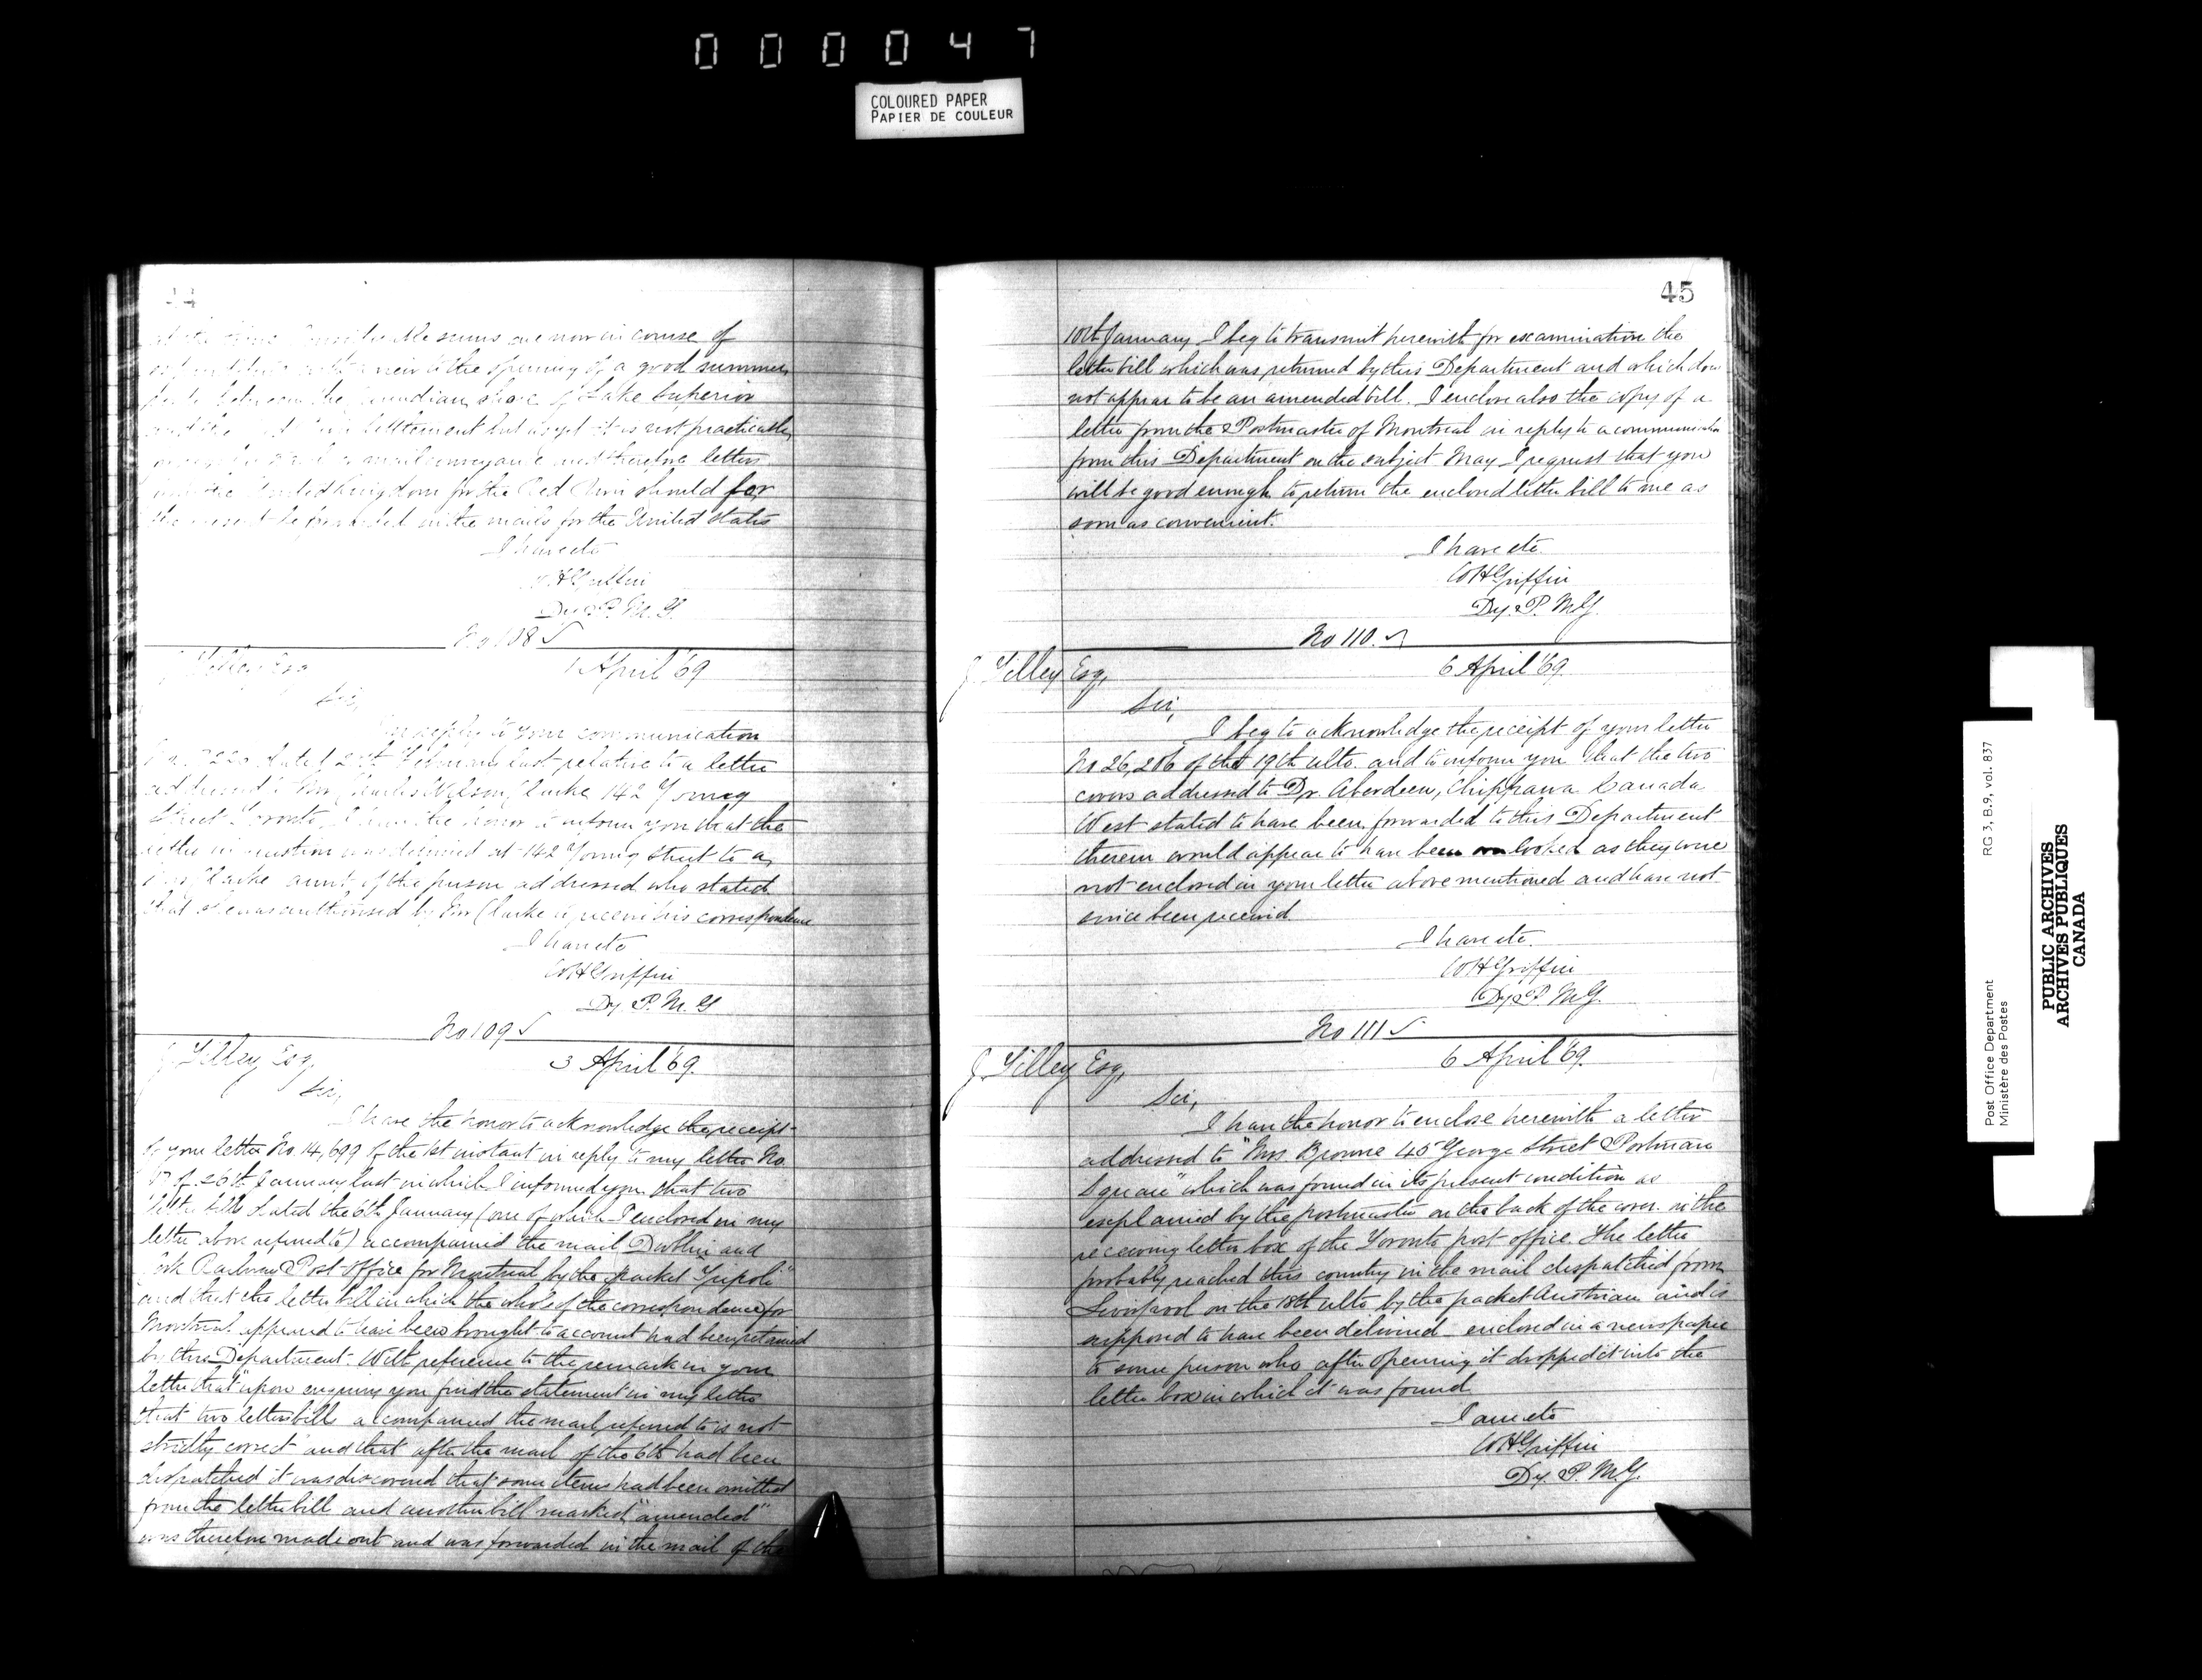 000047
COLOURED PAPER
PAPIER DE COULEUR
44
sums are now in course of
view to the opening of a good summer
between the Canadian shore of Lake Superior
and the Settlement but as yet it is not practicable
mail conveyance and therefore letters
United Kingdom for the Red River should for
the present be forwarded in the mails for the United States
I have etc
W H Griffin
Dy P. M. G.
No 108 ✓
J Tilley Esq
1 April '69
Sir,
In reply to your communication
February last relative to a letter
addressed to Mr Charles Wilson Clarke 142 Young
Street Toronto, I have the honor to inform you that the
letter in question was delivered at 142 Young Street to a
Mrs Clarke aunt of the person addressed who stated
that she was authorised by Mr Clarke to receive his correspondence
I have etc
W H Griffin
Dy P. M. G
No 109 ✓
J Tilley Esq,
3 April '69.
Sir,
I have the honor to acknowledge the receipt
of your letter No. 14,699 of the 1st instant in reply to my letter No.
of 26th January last in which I informed you that two
letter bills dated the 6th January (one of which I enclosed in my
letter above referred to) accompanied the mail Dublin and
Cork Railway Post Office for Montreal by the packet "Tripoli"
and that the letter bill in which the whole of the correspondence for
Montreal appeared to have been brought to account had been retained
by this Department. With reference to the remark in your
letter that "upon enquiry you find the statement in my letter
that two letter bills accompanied the mail referred to is not
strictly correct" and that after the mail of the 6th had been
dispatched it was discovered that some items had been omitted
from the letter bill and another bill marked "amended"
was therefore made out and was forwarded in the mail of the
45
10th January I beg to transmit herewith for examination the
letter bill which was returned by this Department and which does
not appear to be an amended bill. I enclose also the copy of a
letter from the Postmaster of Montreal in reply to a communication
from this Department on the subject May I request that you
will be good enough to return the enclosed letter bill to me as
soon as convenient.
I have etc.
W H Griffin
Dy. P. M.G.
No 110. ✓
J Tilley Esq,
6 April '69.
Sir,
I beg to acknowledge the receipt of your letter
No 26,206 of the 19th ulto. and to inform you that the two
covers addressed to Dr. Aberdeen, Chippawa Canada
West stated to have been forwarded to this Department
therein would appear to have been overlooked as they were
not enclosed in your letter above mentioned and have not
since been received.
I have etc.
W H Griffin
Dy P M.G.
No 111 ✓
J. Tilley Esq,
6 April '69.
Sir,
I have the honor to enclose herewith a letter
addressed to "Mrs. Browne 45 George Street Portman
Square" which was found in its present condition as
explained by the postmaster on the back of the cover in the
receiving letter box of the Toronto post office. The letter
probably reached this country in the mail dispatched from
Liverpool on the 18th ulto. by the packet Austrian and is
supposed to have been delivered enclosed in a newspaper
to some person who after opening it dropped it into the
letter box in which it was found.
I am etc
W H Griffin
Dy. P. M.G.
Post Office Department
Ministère des Postes
RG 3, B.9, vol. 837
PUBLIC ARCHIVES
ARCHIVES PUBLIQUES
CANADA